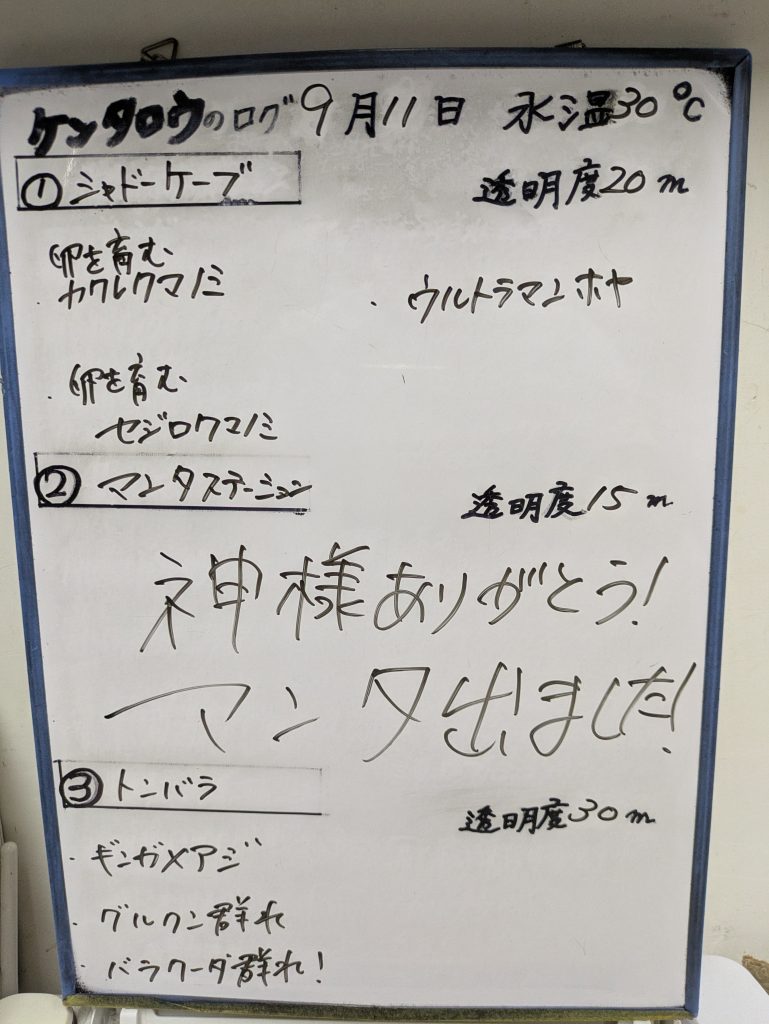 ケンタロウのログ 9月11日 水温30℃
① シャドーケーブ 透明度20m
卵を育む
・カクレクマノミ ・ウルトラマンホヤ
・卵を育む
セジロクマノミ
② マンタステーション 透明度15m
神様ありがとう!
マンタ出ました!
③ トンバラ 透明度30m
・ギンガメアジ
・グルクン群れ
・バラクーダ群れ!